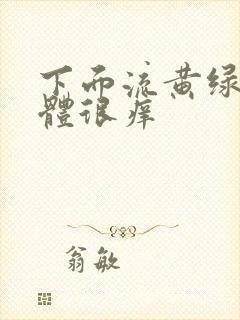 下而流黄绿
體很痒
翁敏